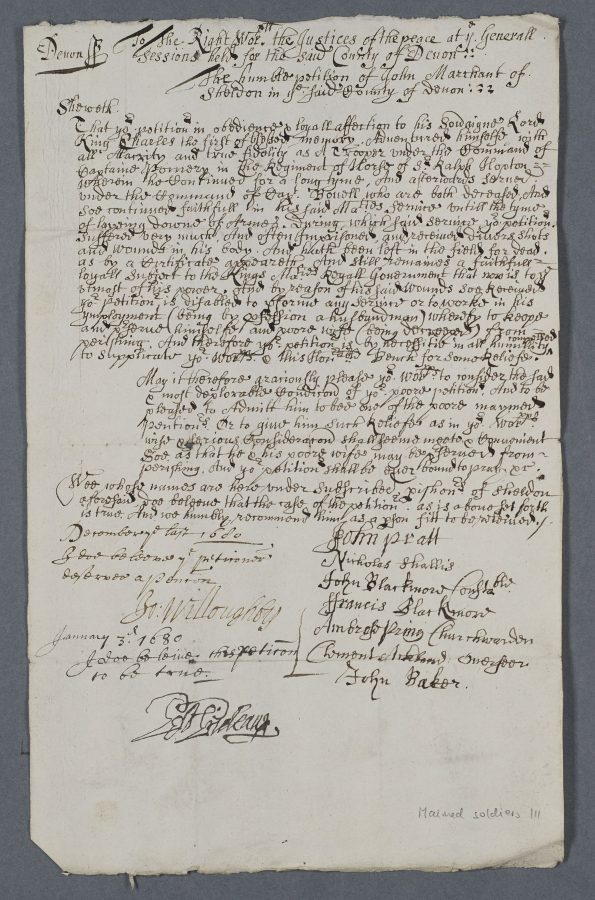 Devon ss To the Right Wor:ll the Justices of the peace at ye Generall
Sessions held for the said County of Devon::
The humble petition of John Marchant of
Sheldon in ye said County of Devon::
Sheweth
That yor petitionr in obedience & loyall affection to his Soveraigne Lord
King Charles the first of blessed memory Adventured himselfe with
all Alacrity and true fidelity as A Trooper under the Command of
Captaine Pomery in the Regiment of Horse of Sr Ralph Hopton
wherein he Continued for a long tyme, And afterwards served
under the Command of Capt Bovell who are both deceased, And
soe continued faithfull in his said Maties Service untill the tyme
of layeing downe of Armes During which said service yor petitionr
Suffered very much And often Imprisoned and received divers shots
and wounds in his body And hath been left in the field for dead
as by a Certificate appeareth And still remaines A faithfull
loyall Subject to the Kings Maties Royall Government that now is to ye
utmost of his power And by reason of his said wounds soe Received
yor petitionr is disabled to p'forme any service or to worke in his
Imployment (being by p'fession a husbandman) whereby to keepe
and p'serve himselfe and poore wife (being decreped) from
perishing. And therefore yor petitionr is by necessitie in all humility compelled
to supplicate yor Worpps & this Honoble Bench for some Reliefe
May it therefore graciously please yor Worpps to consider the said
& most deplorable Condicon of yor poore petitionr And to be
pleased to Admitt him to bee one of the poore maymed
pencioners Or to give him such Reliefe as in yor Worpps
wise & serious Consideracon shall seeme meete & Convenient
Soe as that he & his poore wife may be p'served from
perishing, And yor petitionr shall be Ever bound to pray &c.
Wee whose names are here under Subscribed p'ishonrs of Sheldon
aforesaid doe beleeve that the case of the petitionr as is above set forth
is true And wee humbly recommend him as a p'son fitt to be releived /.
December ye last 1680
I doe beleeve ye petitioner
deserves a pencon
Jo: Willoughby
January 3d 1680
I doe beleive this peticon
to be true.
Edm Prideaux
John Pratt
Nicholas Shallis
John Blackmore Constable
ffrancis Blackmore
Ambrose Pring Churchwarden
Clement Overseer
John Baker.
Maimed soldiers 111